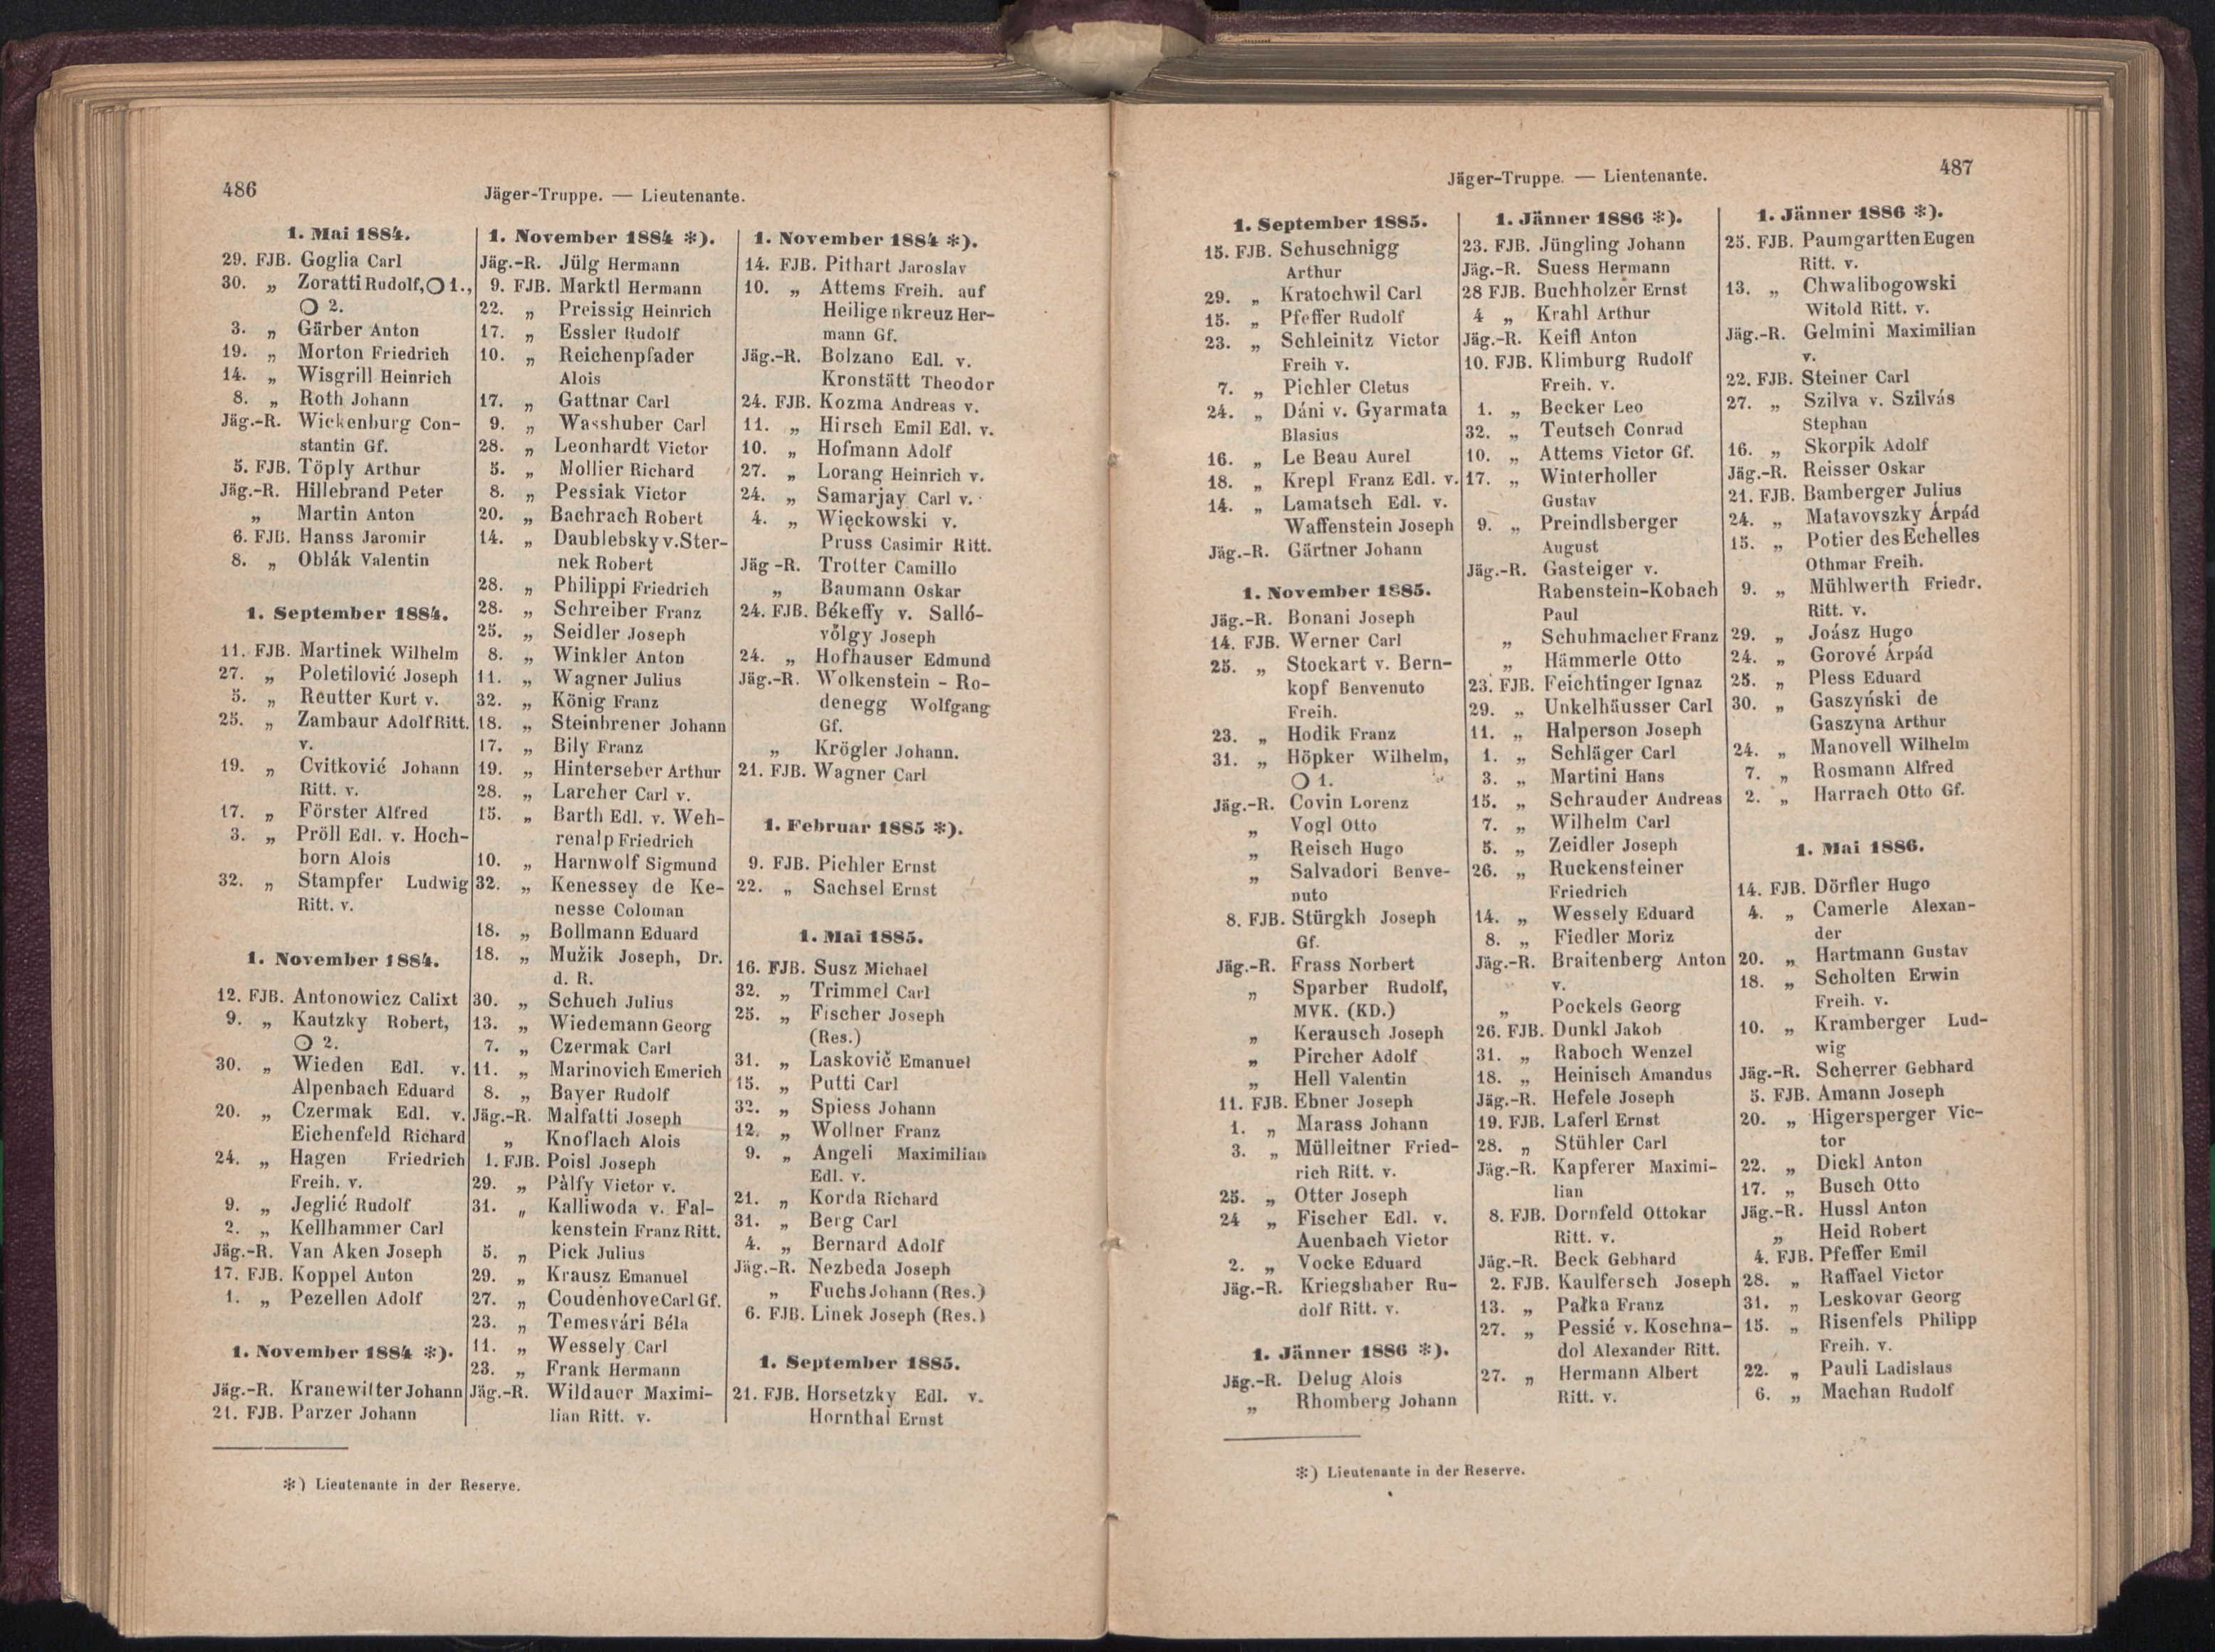 486
Jäger-Truppe. — Lieutenante.
1. Mai 1884.
29. FJB. Goglia Carl
30. „ Zoratti Rudolf, O 1.,
O 2.
3. „ Gärber Anton
19. „ Morton Friedrich
14. „ Wisgrill Heinrich
8. „ Roth Johann
Jäg.-R. Wickenburg Con-
stantin Gf.
5. FJB. Töply Arthur
Jäg.-R. Hillebrand Peter
„ Martin Anton
6. FJB. Hanss Jaromir
8. „ Oblák Valentin
1. September 1884.
11. FJB. Martinek Wilhelm
27. „ Poletilović Joseph
5. „ Reutter Kurt v.
25. „ Zambaur Adolf Ritt.
v.
19. „ Cvitković Johann
Ritt. v.
17. „ Förster Alfred
3. „ Pröll Edl. v. Hoch-
born Alois
32. „ Stampfer Ludwig
Ritt. v.
1. November 1884.
12. FJB. Antonowicz Calixt
9. „ Kautzky Robert,
O 2.
30. „ Wieden Edl. v.
Alpenbach Eduard
20. „ Czermak Edl. v.
Eichenfeld Richard
24. „ Hagen Friedrich
Freih. v.
9. „ Jeglić Rudolf
2. „ Kellhammer Carl
Jäg.-R. Van Aken Joseph
17. FJB. Koppel Anton
1. „ Pezellen Adolf
1. November 1884 *).
Jäg.-R. Kranewitter Johann
21. FJB. Parzer Johann
1. November 1884 *).
Jäg.-R. Jülg Hermann
9. FJB. Marktl Hermann
22. „ Preissig Heinrich
17. „ Essler Rudolf
10. „ Reichenpfader
Alois
17. „ Gattnar Carl
9. „ Wasshuber Carl
28. „ Leonhardt Victor
5. „ Mollier Richard
8. „ Pessiak Victor
20. „ Bachrach Robert
14. „ Daublebsky v. Ster-
nek Robert
28. „ Philippi Friedrich
28. „ Schreiber Franz
25. „ Seidler Joseph
8. „ Winkler Anton
11. „ Wagner Julius
32. „ König Franz
18. „ Steinbrener Johann
17. „ Bily Franz
19. „ Hinterseber Arthur
28. „ Larcher Carl v.
15. „ Barth Edl. v. Weh-
renalp Friedrich
10. „ Harnwolf Sigmund
32. „ Kenessey de Ke-
nesse Coloman
18. „ Bollmann Eduard
18. „ Mužik Joseph, Dr.
d. R.
30. „ Schuch Julius
13. „ Wiedemann Georg
7. „ Czermak Carl
11. „ Marinovich Emerich
8. „ Bayer Rudolf
Jäg.-R. Malfatti Joseph
„ Knoflach Alois
1. FJB. Poisl Joseph
29. „ Pàlfy Victor v.
31. „ Kalliwoda v. Fal-
kenstein Franz Ritt.
5. „ Pick Julius
29. „ Krausz Emanuel
27. „ Coudenhove Carl Gf.
23. „ Temesvári Béla
11. „ Wessely Carl
23. „ Frank Hermann
Jäg.-R. Wildauer Maximi-
lian Ritt. v.
1. November 1884 *).
14. FJB. Pithart Jaroslav
10. „ Attems Freih. auf
Heiligenkreuz Her-
mann Gf.
Jäg.-R. Bolzano Edl. v.
Kronstätt Theodor
24. FJB. Kozma Andreas v.
11. „ Hirsch Emil Edl. v.
10. „ Hofmann Adolf
27. „ Lorang Heinrich v.
24. „ Samarjay Carl v.
4. „ Więckowski v.
Pruss Casimir Ritt.
Jäg -R. Trotter Camillo
„ Baumann Oskar
24. FJB. Békeffy v. Salló-
völgy Joseph
24. „ Hofhauser Edmund
Jäg.-R. Wolkenstein - Ro-
denegg Wolfgang
Gf.
„ Krögler Johann.
21. FJB. Wagner Carl
1. Februar 1885 *).
9. FJB. Pichler Ernst
22. „ Sachsel Ernst
1. Mai 1885.
16. FJB. Susz Michael
32. „ Trimmel Carl
25. „ Fischer Joseph
(Res.)
31. „ Laskovič Emanuel
15. „ Putti Carl
32. „ Spiess Johann
12. „ Wollner Franz
9. „ Angeli Maximilian
Edl. v.
21. „ Korda Richard
31. „ Berg Carl
4. „ Bernard Adolf
Jäg.-R. Nezbeda Joseph
„ Fuchs Johann (Res.)
6. FJB. Linek Joseph (Res.)
1. September 1885.
21. FJB. Horsetzky Edl. v.
Hornthal Ernst
*) Lieutenante in der Reserve.
487
Jäger-Truppe. — Lientenante.
1. September 1885.
15. FJB. Schuschnigg
Arthur
29. „ Kratochwil Carl
15. „ Pfeffer Rudolf
23. „ Schleinitz Victor
Freih v.
7. „ Pichler Cletus
24. „ Dáni v. Gyarmata
Blasius
16. „ Le Beau Aurel
18. „ Krepl Franz Edl. v.
14. „ Lamatsch Edl. v.
Waffenstein Joseph
Jäg.-R. Gärtner Johann
1. November 1885.
Jäg.-R. Bonani Joseph
14. FJB. Werner Carl
25. „ Stockart v. Bern-
kopf Benvenuto
Freih.
23. „ Hodik Franz
31. „ Höpker Wilhelm,
O 1.
Jäg.-R. Covin Lorenz
„ Vogl Otto
„ Reisch Hugo
„ Salvadori Benve-
nuto
8. FJB. Stürgkh Joseph
Gf.
Jäg.-R. Frass Norbert
„ Sparber Rudolf,
MVK. (KD.)
„ Kerausch Joseph
„ Pircher Adolf
„ Hell Valentin
11. FJB. Ebner Joseph
1. „ Marass Johann
3. „ Mülleitner Fried-
rich Ritt. v.
25. „ Otter Joseph
24 „ Fischer Edl. v.
Auenbach Victor
2. „ Vocke Eduard
Jäg.-R. Kriegshaber Ru-
dolf Ritt. v.
1. Jänner 1886 *).
Jäg.-R. Delug Alois
„ Rhomberg Johann
1. Jänner 1886 *).
23. FJB. Jüngling Johann
Jäg.-R. Suess Hermann
28 FJB. Buchholzer Ernst
4 „ Krahl Arthur
Jäg.-R. Keifl Anton
10. FJB. Klimburg Rudolf
Freih. v.
1. „ Becker Leo
32. „ Teutsch Conrad
10. „ Attems Victor Gf.
17. „ Winterholler
Gustav
9. „ Preindlsberger
August
Jäg.-R. Gasteiger v.
Rabenstein-Kobach
Paul
„ Schuhmacher Franz
„ Hämmerle Otto
23. FJB. Feichtinger Ignaz
29. „ Unkelhäusser Carl
11. „ Halperson Joseph
1. „ Schläger Carl
3. „ Martini Hans
15. „ Schrauder Andreas
7. „ Wilhelm Carl
5. „ Zeidler Joseph
26. „ Ruckensteiner
Friedrich
14. „ Wessely Eduard
8. „ Fiedler Moriz
Jäg.-R. Braitenberg Anton
v.
„ Pockels Georg
26. FJB. Dunkl Jakob
31. „ Raboch Wenzel
18. „ Heinisch Amandus
Jäg.-R. Hefele Joseph
19. FJB. Laferl Ernst
28. „ Stühler Carl
Jäg.-R. Kapferer Maximi-
lian
8. FJB. Dornfeld Ottokar
Ritt. v.
Jäg.-R. Beck Gebhard
2. FJB. Kaulfersch Joseph
13. „ Pałka Franz
27. „ Pessić v. Koschna-
dol Alexander Ritt.
27. „ Hermann Albert
Ritt. v.
1. Jänner 1886 *).
25. FJB. Paumgartten Eugen
Ritt. v.
13. „ Chwalibogowski
Witold Ritt. v.
Jäg.-R. Gelmini Maximilian
v.
22. FJB. Steiner Carl
27. „ Szilva v. Szilvás
Stephan
16. „ Skorpik Adolf
Jäg.-R. Reisser Oskar
21. FJB. Bamberger Julius
24. „ Matavovszky Árpád
15. „ Potier des Echelles
Othmar Freih.
9. „ Mühlwerth Friedr.
Ritt. v.
29. „ Joász Hugo
24. „ Gorové Árpád
25. „ Pless Eduard
30. „ Gaszyński de
Gaszyna Arthur
24. „ Manovell Wilhelm
7. „ Rosmann Alfred
2. „ Harrach Otto Gf.
1. Mai 1886.
14. FJB. Dörfler Hugo
4. „ Camerle Alexan-
der
20. „ Hartmann Gustav
18. „ Scholten Erwin
Freih. v.
10. „ Kramberger Lud-
wig
Jäg.-R. Scherrer Gebhard
5. FJB. Amann Joseph
20. „ Higersperger Vic-
tor
22. „ Dickl Anton
17. „ Busch Otto
Jäg.-R. Hussl Anton
„ Heid Robert
4. FJB. Pfeffer Emil
28. „ Raffael Victor
31. „ Leskovar Georg
15. „ Risenfels Philipp
Freih. v.
22. „ Pauli Ladislaus
6. „ Machan Rudolf
*) Lieutenante in der Reserve.